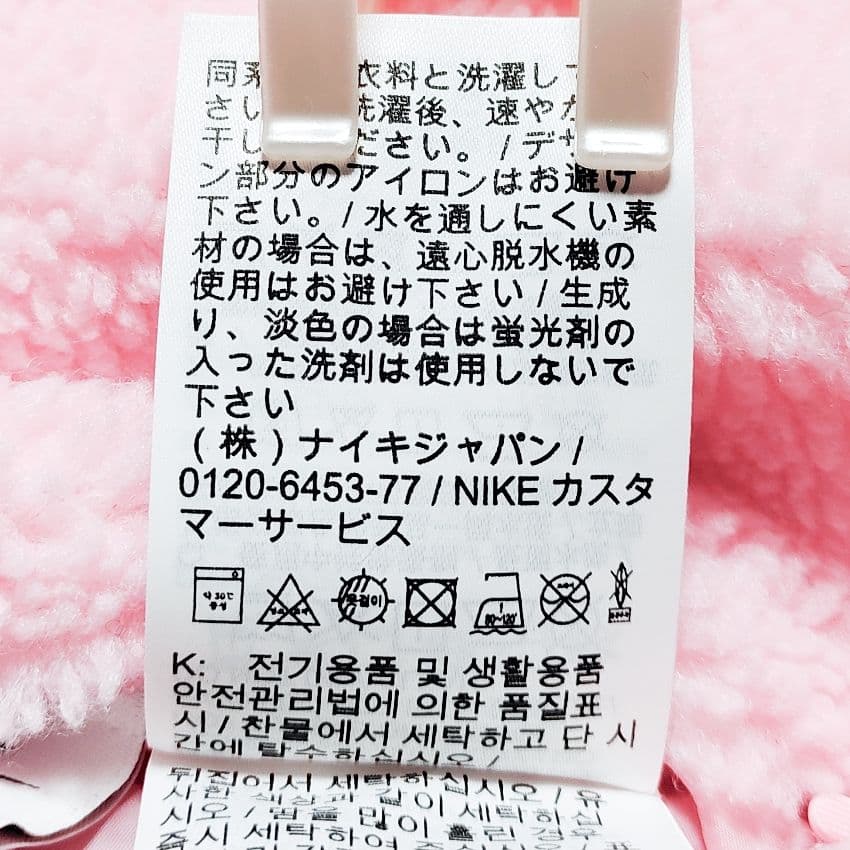 同系 衣料と洗濯して
さい 洗濯後、速やか
干し ださい。/ デザ
ン部分のアイロンはお避け
下さい。/ 水を通しにくい素
材の場合は、遠心脱水機の
使用はお避け下さい / 生成
り、淡色の場合は蛍光剤の
入った洗剤は使用しないで
下さい
( 株 ) ナイキジャパン /
0120-6453-77 / NIKE カスタ
マーサービス
약 30℃ 중성 옷걸이 80~120℃
K: 전기용품 및 생활용품
안전관리법에 의한 품질표
시 / 찬물에서 세탁하고 단 시
간에 탈수하십시오 /
뒤집어서 세탁하십시오 / 유
사한 색상과 같이 세탁하십
시오 / 땀을 많이 흘린 경우
즉시 세탁하여